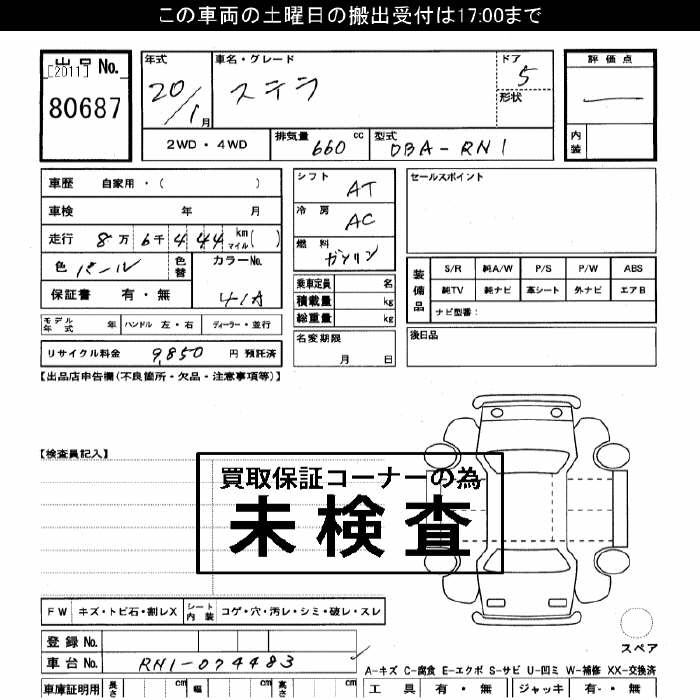 この車両の土曜日の搬出受付は17:00まで
出品 No.
[2011]
80687
年式
20/1月
車名・グレード
ステラ
ドア
5
形状
評価点
内装
2WD・4WD
排気量 660 cc
型式 DBA-RN1
車歴 自家用・( )
車検 年 月
走行 8万 6千 4 44 km マイル ( )
色 パール
色替
カラーNo.
41A
保証書 有・無
モデル年式 年
ハンドル 左・右
ディーラー・並行
リサイクル料金 9,850 円 預託済
シフト AT
冷房 AC
燃料 ガソリン
乗車定員 名
積載量 kg
総重量 kg
名変期限
月 日
セールスポイント
装備品
S/R 純A/W P/S P/W ABS
純TV 純ナビ 革シート 外ナビ エアB
ナビ型番:
後日品
【出品店申告欄(不良箇所・欠品・注意事項等)】
【検査員記入】
買取保証コーナーの為
未検査
FW キズ・トビ石・割レX
シート内装 コゲ・穴・汚レ・シミ・破レ・スレ
登録No.
車台No. RN1-074483
スペア
A-キズ C-腐食 E-エクボ S-サビ U-凹ミ W-補修 XX-交換済
車庫証明用 長さ cm 幅 cm 高さ cm
工具 有・無 ジャッキ 有・無